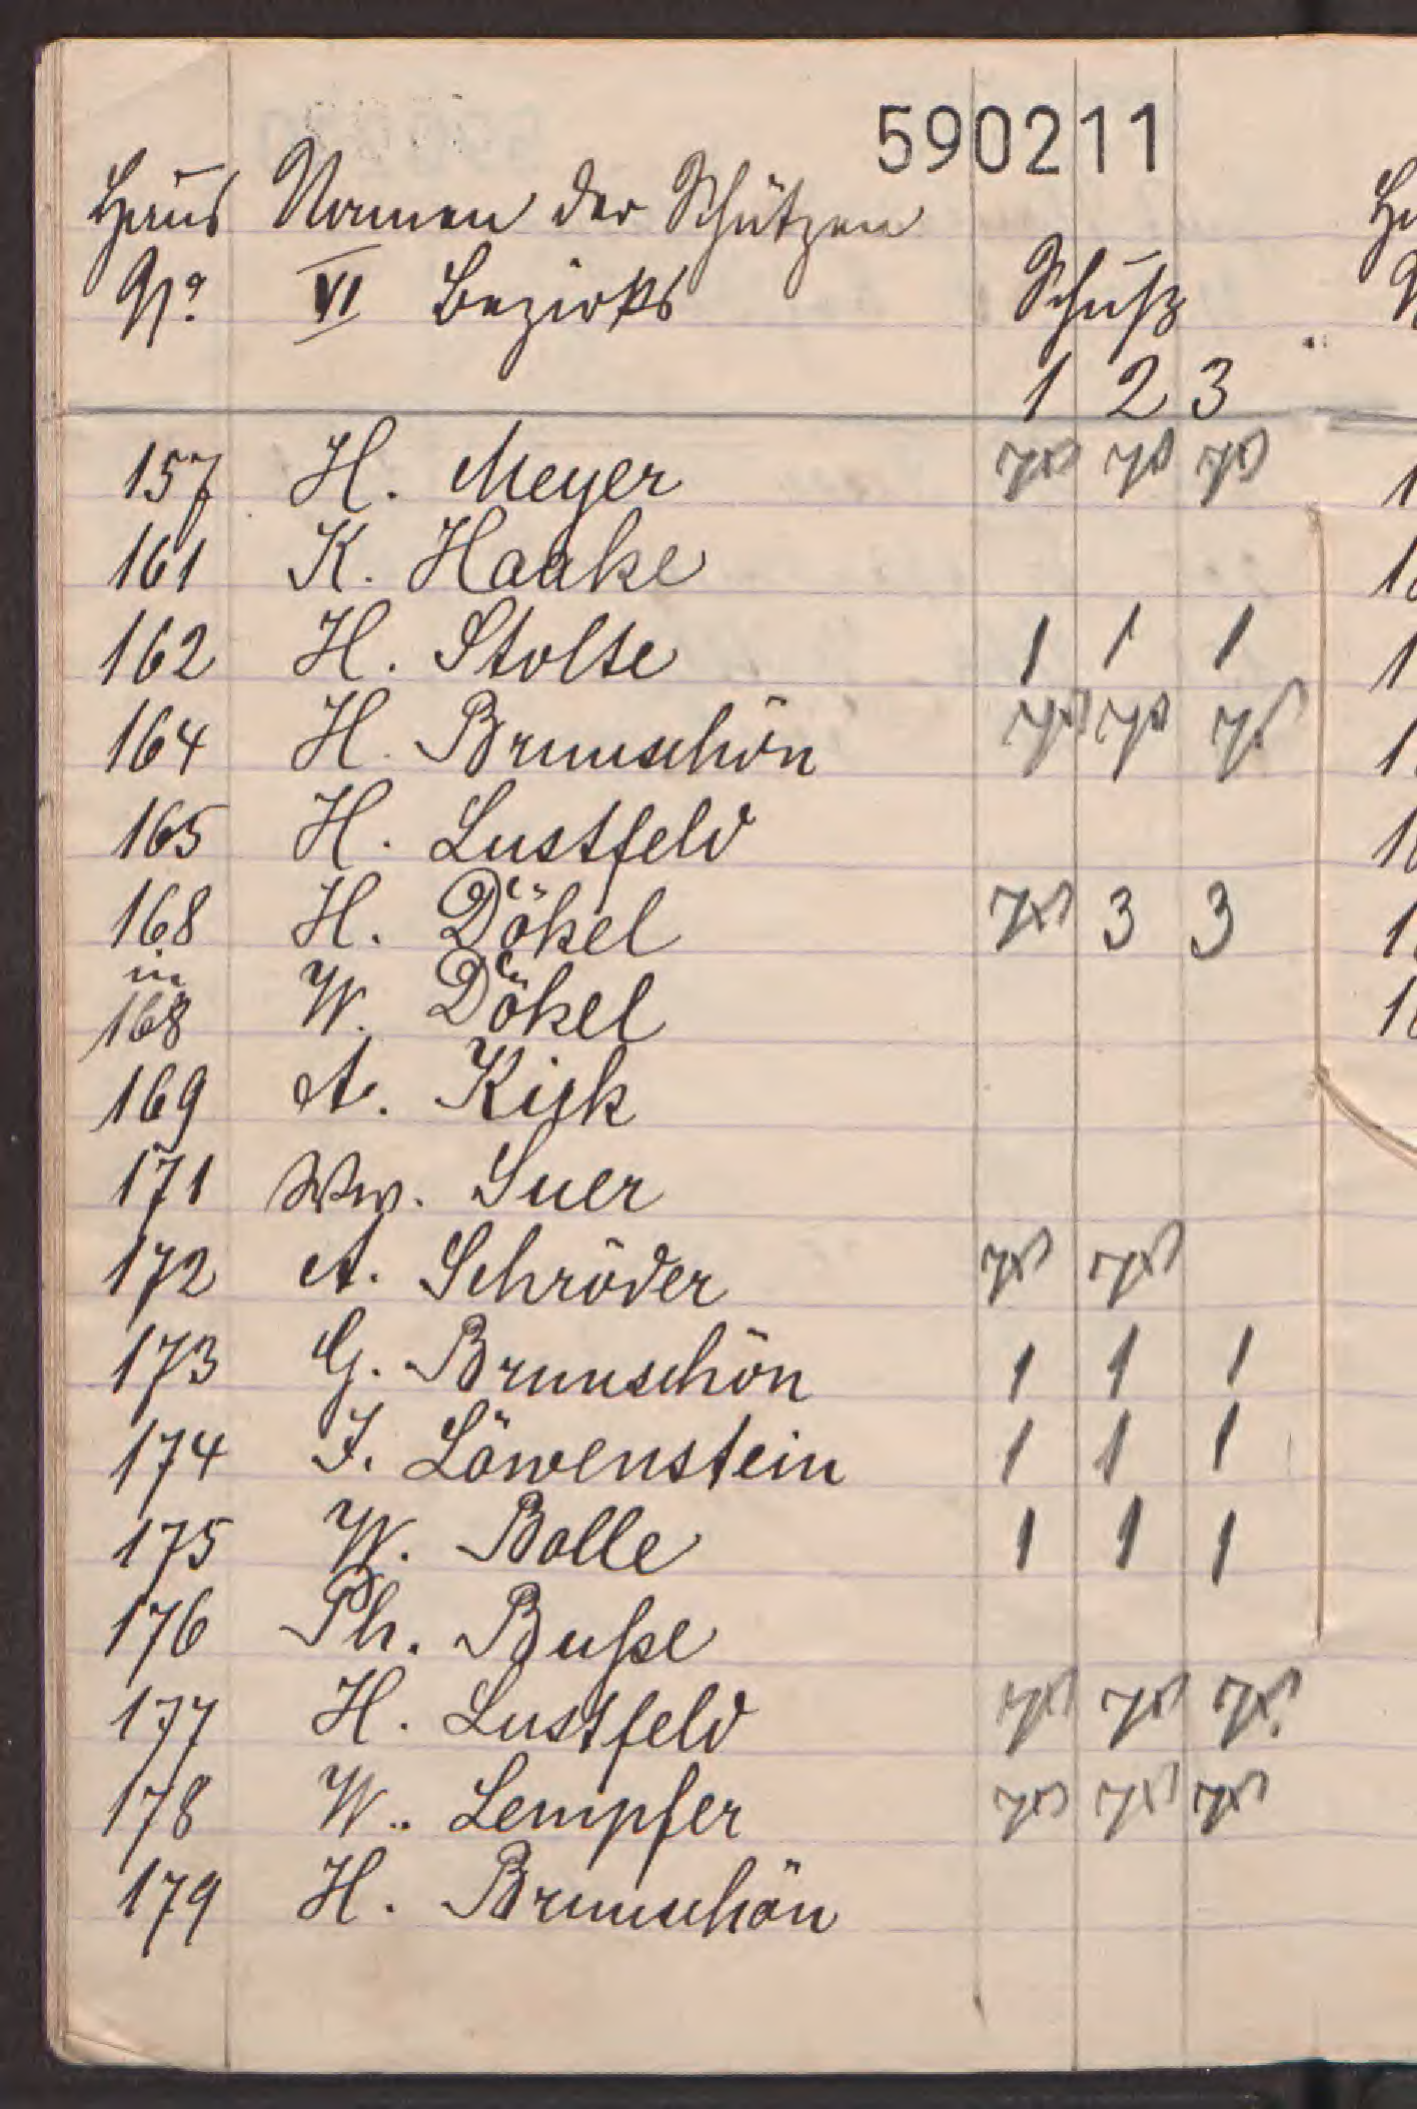 590211
Haus Namen der Schützen
No. VI Bezirks Schuß
1 2 3
157 H. Meyer
161 K. Haake
162 H. Stolte 1 1 1
164 H. Brunschön
165 H. Lustfeld
168 H. Dökel 3 3
in 168 W. Dökel
169 A. Kijk
171 Ww. Suer
172 A. Schröder
173 G. Brunschön 1 1 1
174 J. Löwenstein 1 1 1
175 W. Bolle 1 1 1
176 Ph. Buße
177 H. Lustfeld
178 W. Lempfer
179 H. Brunschön